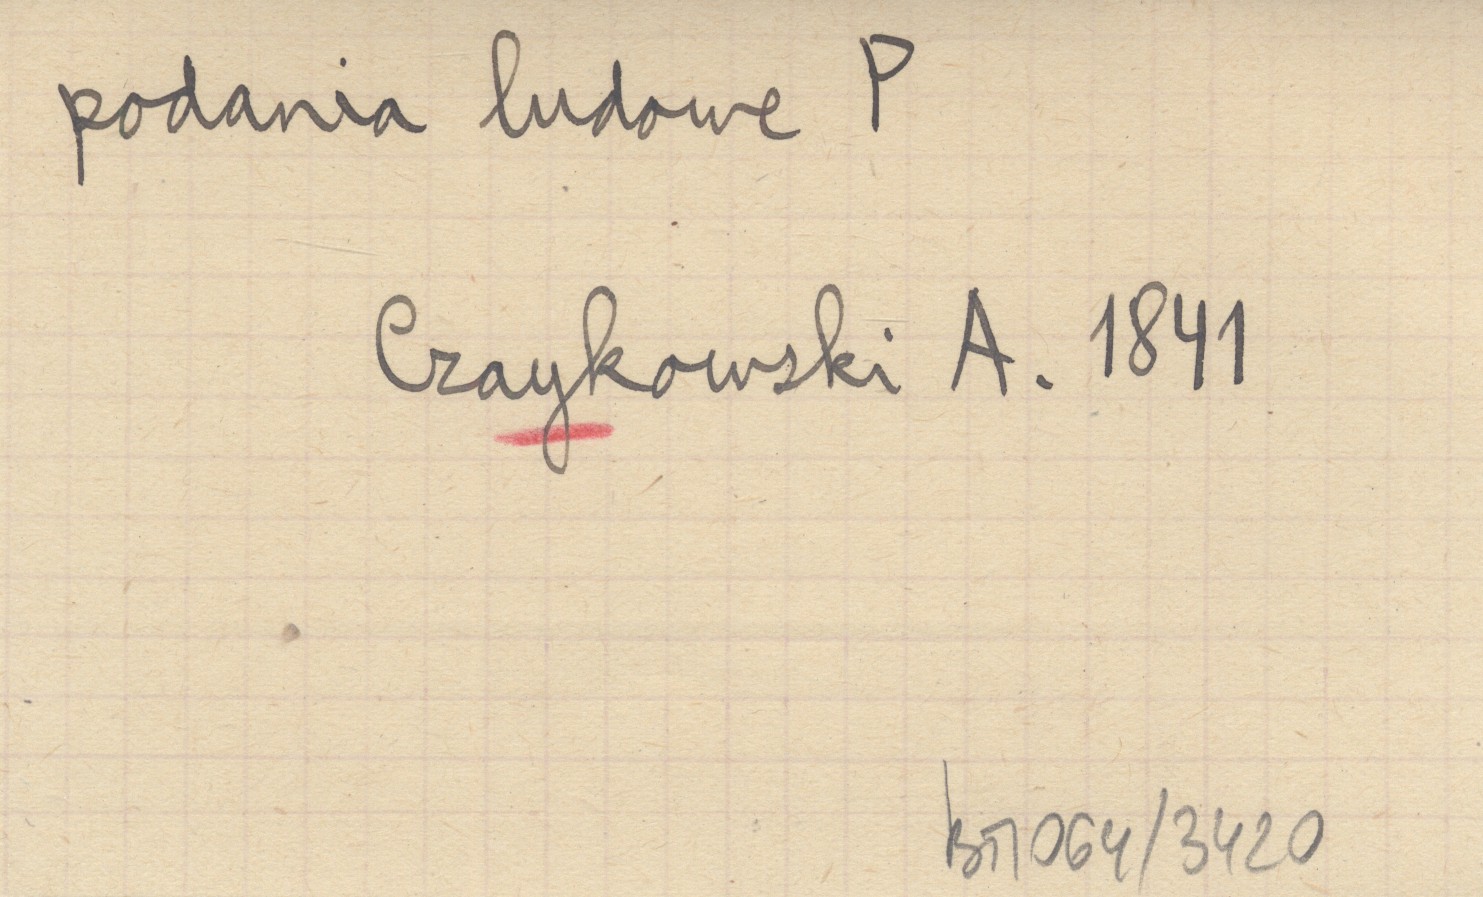 podania ludowe P
Czaykowski A. 1841
064/3420